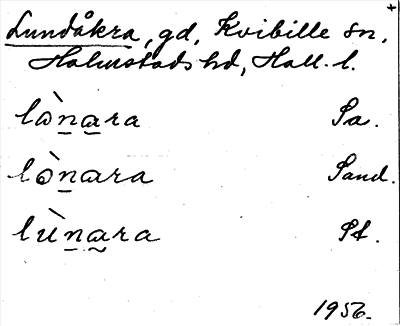 +
Lundåkra, gd, Kvibille sn,
Halmstads hd, Hall. l.
lànara Sa.
lònara Sand.
lùnara St.
1956.